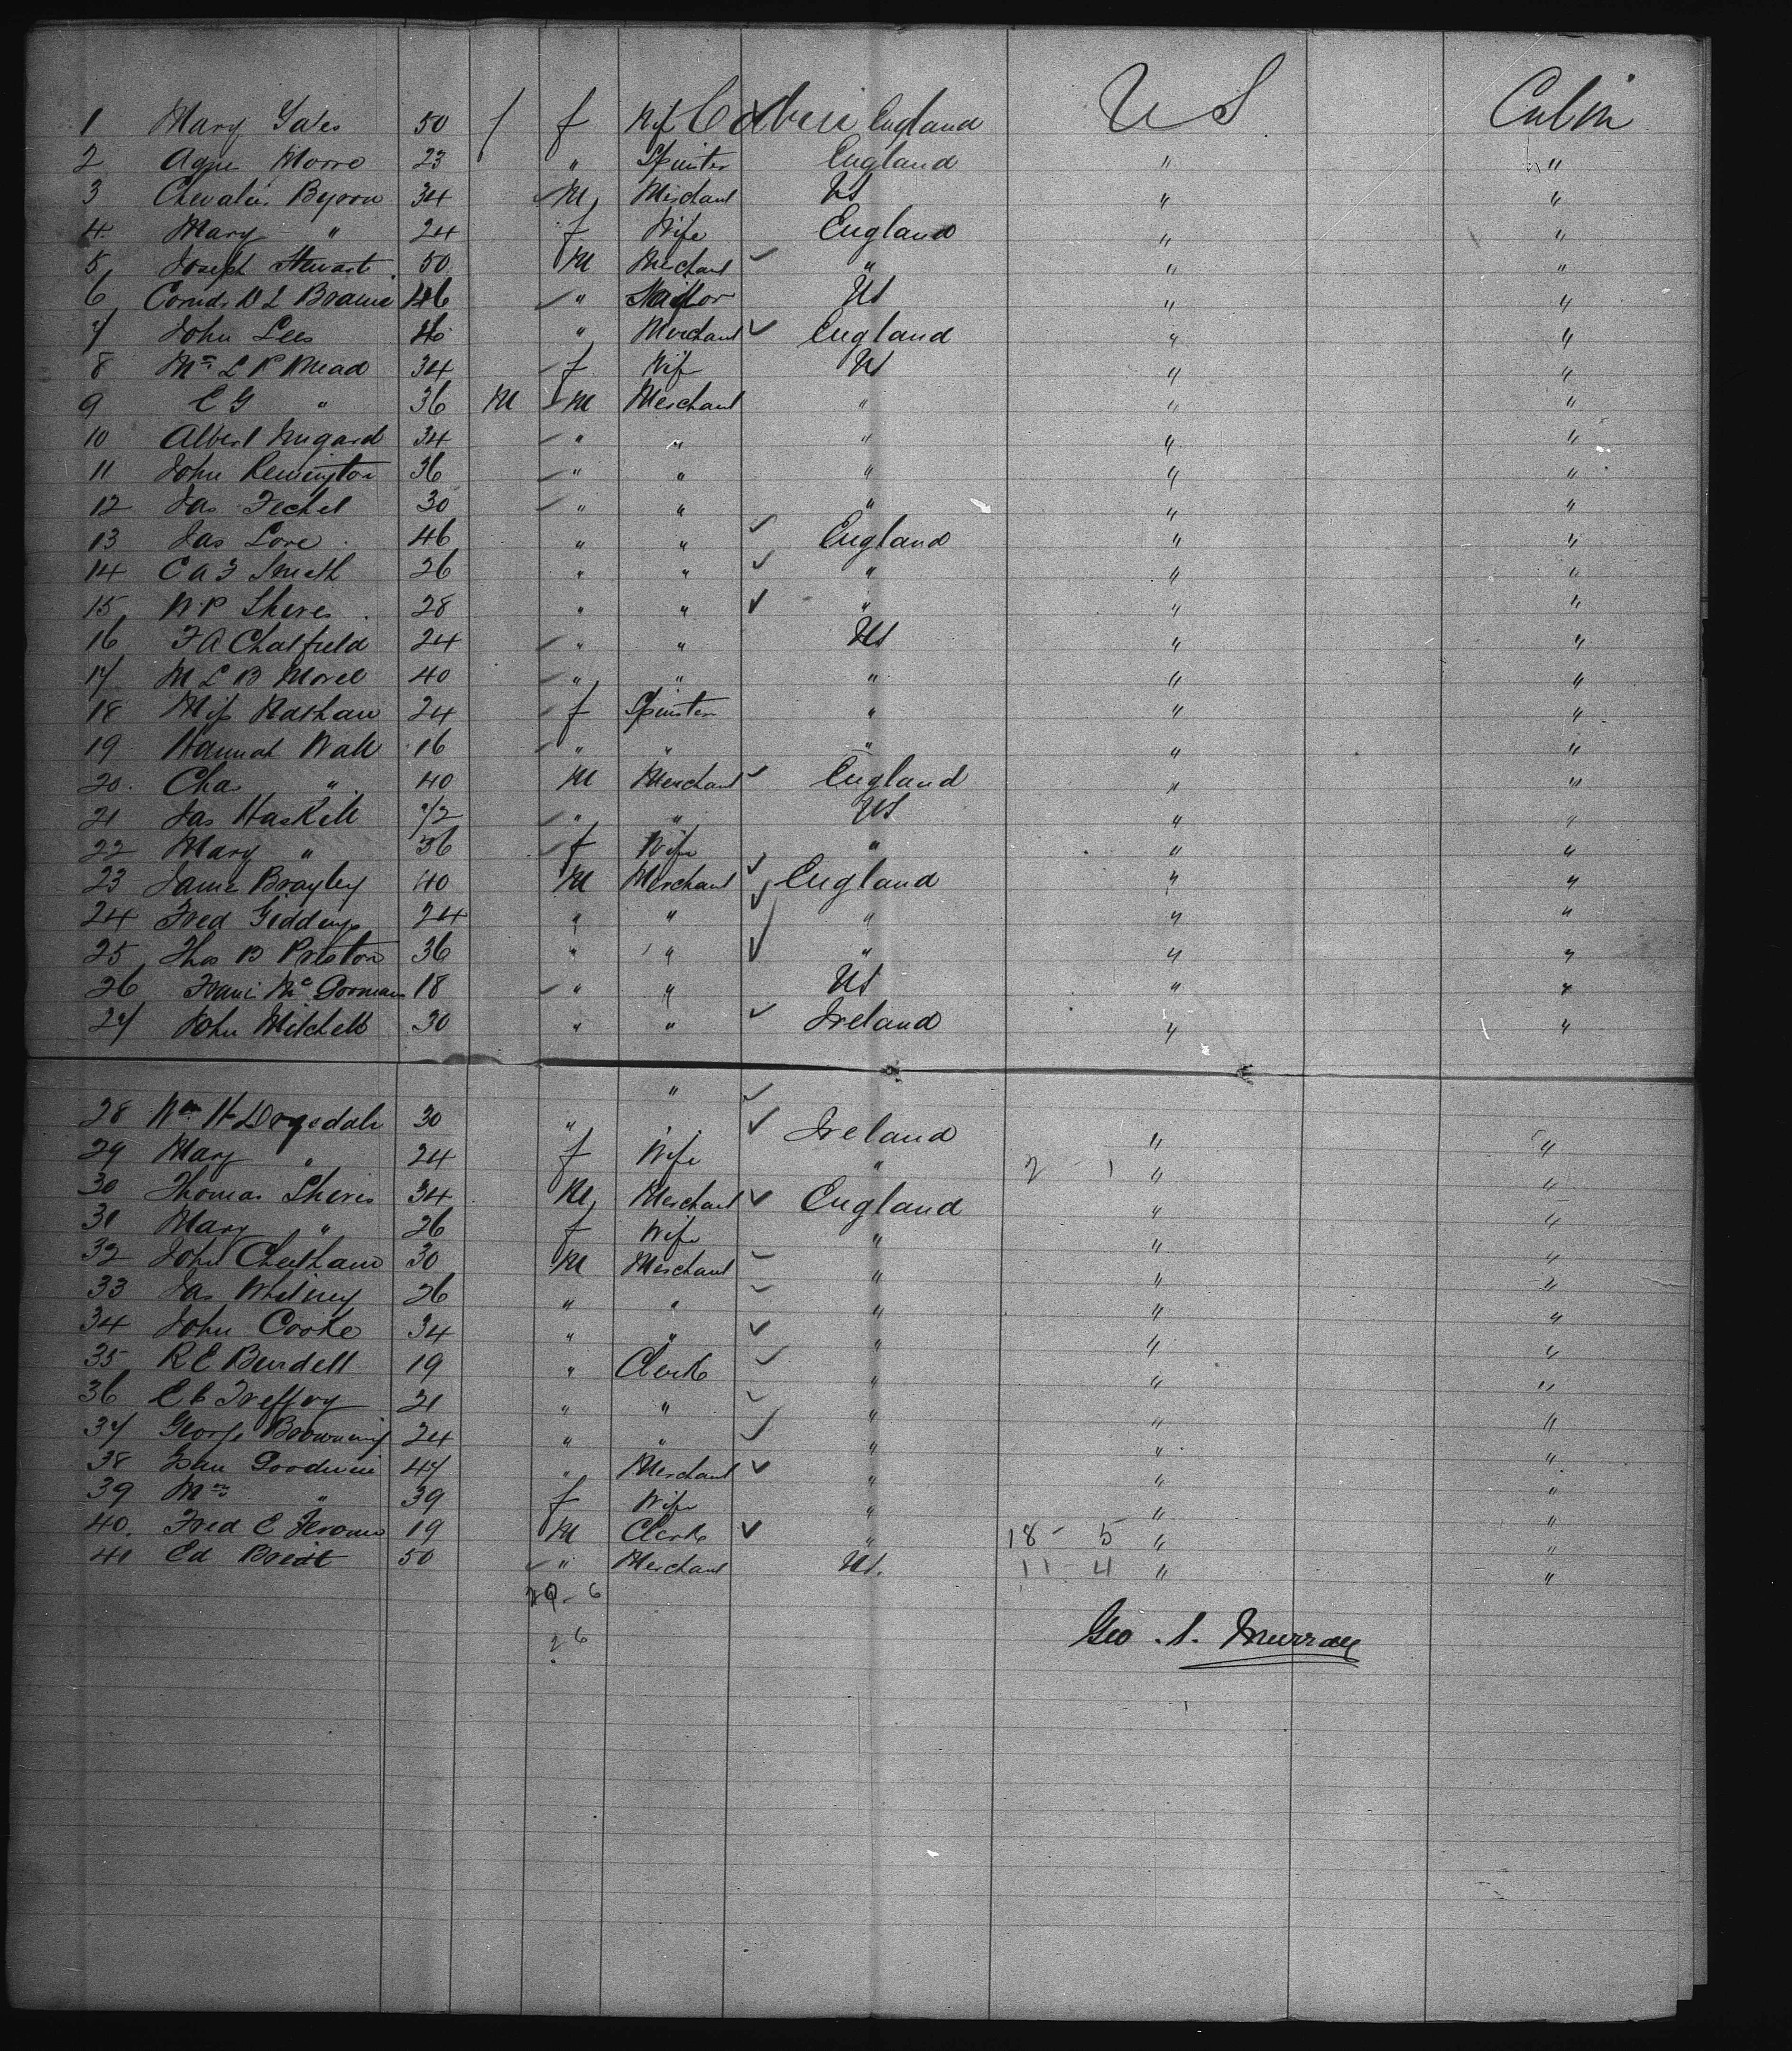 1 Mary Yates 50 f f Wif Cabin England US Cabin
2 Agne Moore 23 " Spinster England " "
3 Chevalier Byron 34 M Merchant US " "
4 Mary " 24 f Wife England " "
5 Joseph Stewart 50 M Merchant " " "
6 D L Braine 46 " Sailor US " "
7 John Lees 40 " Merchant England " "
8 Mrs L P Mead 34 f Wif US " "
9 C G " 36 M M Merchant " " "
10 Albert 34 " " " " "
11 John Remington 36 " " " " "
12 Jas Fechel 30 " " " " "
13 Jas Love 46 " " England " "
14 C A F Smith 26 " " " " "
15 W P Sheres 28 " " " " "
16 F A Chatfield 24 " " US " "
17 M L B Morel 40 " " " " "
18 Miss Nathan 24 f Spinster " " "
19 Hannah Wall 16 " " " " "
20 Cha " 40 M Merchant England " "
21 Jas Haskell 42 " " US " "
22 Mary " 36 f Wife " " "
23 Jame Brayley 40 M Merchant England " "
24 Fred Giddings 24 " " " " "
25 Thos B Preston 36 " " " " "
26 Mc Gorman 18 " " US " "
27 John Mitchell 30 " " Ireland " "
28 Wm H Drysdale 30 " " Ireland " "
29 Mary " 24 f Wife " 2 - 1 " "
30 Thomas Sheris 34 M Merchant England " "
31 Mary " 26 f Wife " " "
32 John Cheetham 30 M Merchant " " "
33 Jas Whitney 26 " " " " "
34 John Cooke 34 " " " " "
35 R E Burdett 19 " Clerk " " "
36 Treffry 21 " " " " "
37 George Browning 24 " " " " "
38 Goodwin 47 " Merchant " " "
39 Mrs " 39 f Wife " " "
40. Fred C Jerome 19 M Clerk " 18 - 5 " "
41 Ed 50 " Merchant US. 11 - 4 " "
29 - 6
26
Geo. S. Murray